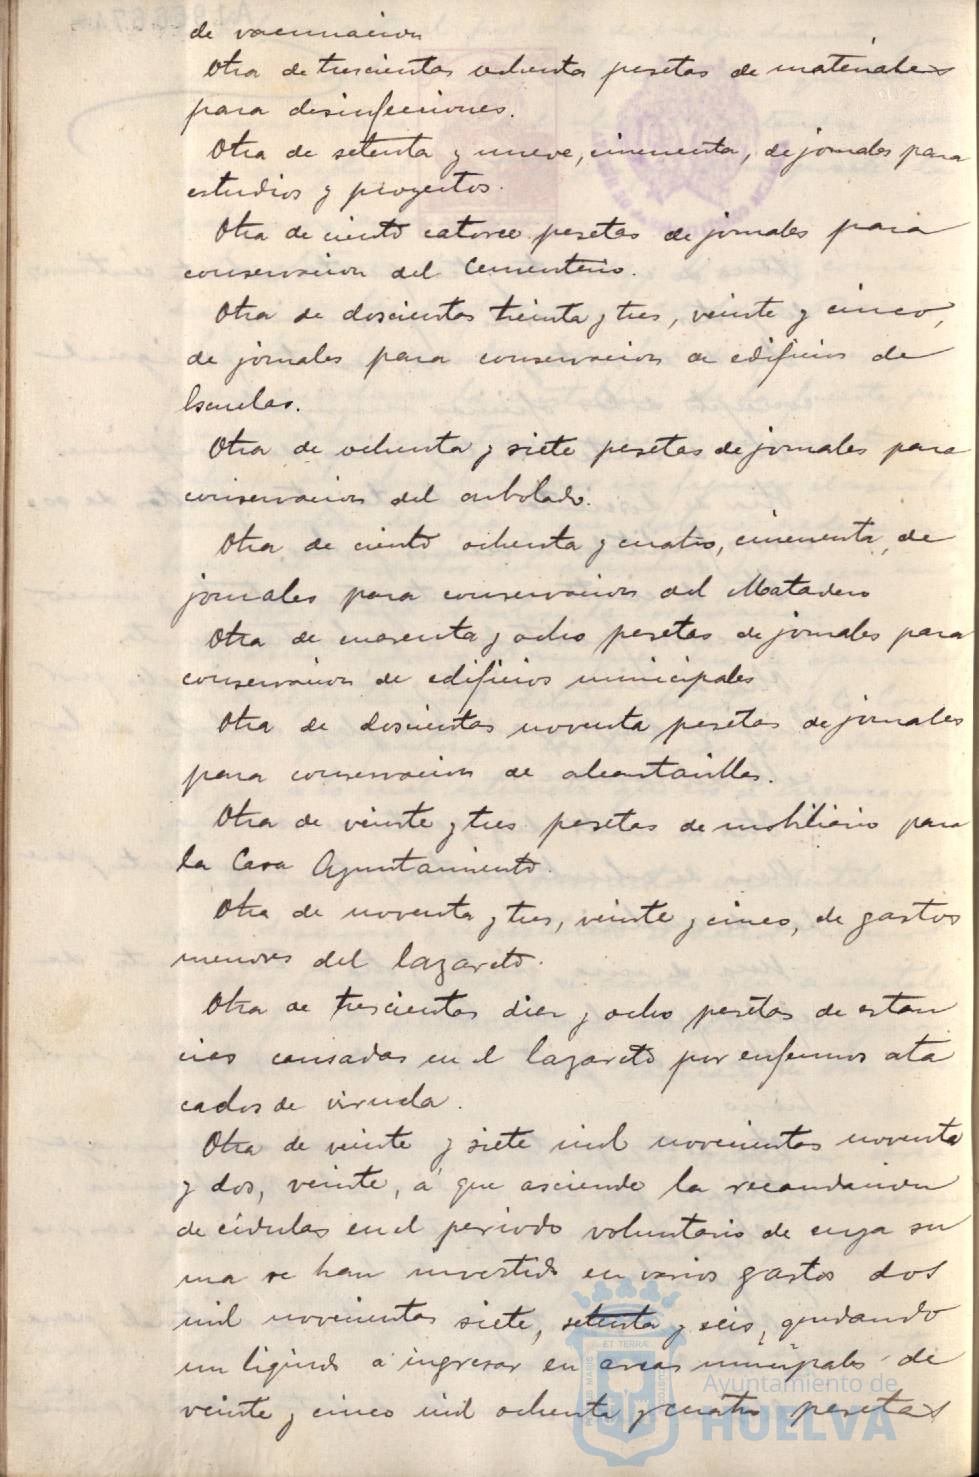 de vacunacion
Otra de trescientas ochenta pesetas de materiales
para desinfecciones.
Otra de setenta y nueve, cincuenta, de jornales para
estudios y proyectos.
Otra de ciento catorce pesetas de jornales para
conservacion del Cementerio.
Otra de doscientas treinta y tres, veinte y cinco,
de jornales para conservacion de edificios de
Escuelas.
Otra de ochenta y siete pesetas de jornales para
conservacion del arbolado.
Otra de ciento ochenta y cuatro, cincuenta, de
jornales para conservacion del Matadero
Otra de cuarenta y ocho pesetas de jornales para
conservacion de edificios municipales
Otra de doscientas noventa pesetas de jornales
para conservacion de alcantarillas.
Otra de veinte y tres pesetas de mobiliario para
la Casa Ayuntamiento.
Otra de noventa y tres, veinte y cinco, de gastos
menores del lazareto.
Otra de trescientas diez y ocho pesetas de estan
cias causadas en el lazareto por enfermos ata
cados de viruela.
Otra de veinte y siete mil novecientas noventa
y dos, veinte, a que asciende la recaudacion
de cédulas en el periodo voluntario de cuya su
ma se han invertido en varios gastos dos
mil novecientas siete, setenta y seis, quedando
un liquido a ingresar en arcas municipales de
veinte y cinco mil ochenta y cuatro pesetas
Ayuntamiento de
HUELVA